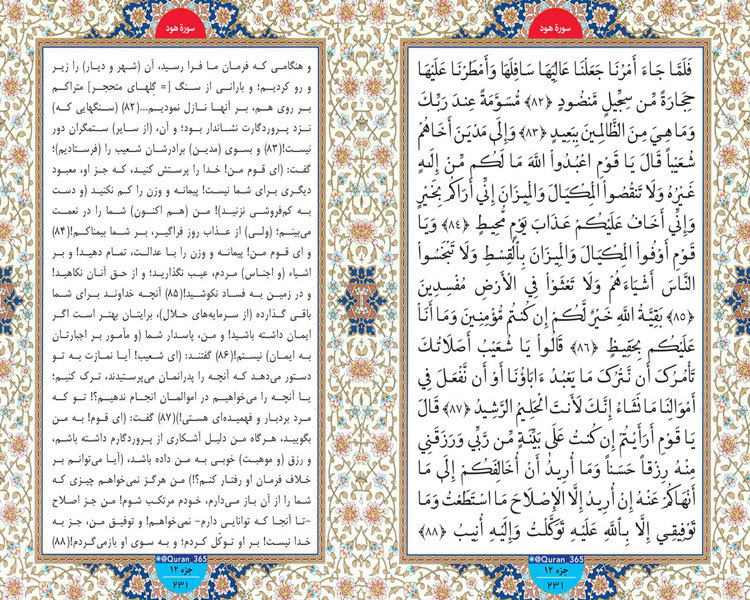 سورهٔ هود
فَلَمَّا جَاءَ أَمْرُنَا جَعَلْنَا عَالِيَهَا سَافِلَهَا وَأَمْطَرْنَا عَلَيْهَا
حِجَارَةً مِّن سِجِّيلٍ مَّنضُودٍ ﴿۸۲﴾ مُّسَوَّمَةً عِندَ رَبِّكَ
وَمَا هِيَ مِنَ الظَّالِمِينَ بِبَعِيدٍ ﴿۸۳﴾ وَإِلَى مَدْيَنَ أَخَاهُمْ
شُعَيْبًا قَالَ يَا قَوْمِ اعْبُدُواْ اللّهَ مَا لَكُم مِّنْ إِلَـهٍ
غَيْرُهُ وَلاَ تَنقُصُواْ الْمِكْيَالَ وَالْمِيزَانَ إِنِّيَ أَرَاكُم بِخَيْرٍ
وَإِنِّيَ أَخَافُ عَلَيْكُمْ عَذَابَ يَوْمٍ مُّحِيطٍ ﴿۸۴﴾ وَيَا
قَوْمِ أَوْفُواْ الْمِكْيَالَ وَالْمِيزَانَ بِالْقِسْطِ وَلاَ تَبْخَسُواْ
النَّاسَ أَشْيَاءَهُمْ وَلاَ تَعْثَوْاْ فِي الأَرْضِ مُفْسِدِينَ
﴿۸۵﴾ بَقِيَّةُ اللّهِ خَيْرٌ لَّكُمْ إِن كُنتُم مُّؤْمِنِينَ وَمَا أَنَاْ
عَلَيْكُم بِحَفِيظٍ ﴿۸۶﴾ قَالُواْ يَا شُعَيْبُ أَصَلاَتُكَ
تَأْمُرُكَ أَن نَّتْرُكَ مَا يَعْبُدُ ءَابَاؤُنَا أَوْ أَن نَّفْعَلَ فِي
أَمْوَالِنَا مَا نَشَاءُ إِنَّكَ لَأَنتَ الْحَلِيمُ الرَّشِيدُ ﴿۸۷﴾ قَالَ
يَا قَوْمِ أَرَأَيْتُمْ إِن كُنتُ عَلَىَ بَيِّنَةٍ مِّن رَّبِّي وَرَزَقَنِي
مِنْهُ رِزْقًا حَسَنًا وَمَا أُرِيدُ أَنْ أُخَالِفَكُمْ إِلَى مَا
أَنْهَاكُمْ عَنْهُ إِنْ أُرِيدُ إِلاَّ الإِصْلاَحَ مَا اسْتَطَعْتُ وَمَا
تَوْفِيقِي إِلاَّ بِاللّهِ عَلَيْهِ تَوَكَّلْتُ وَإِلَيْهِ أُنِيبُ ﴿۸۸﴾
@Quran_365
جزء ۱۲
۲۳۱
سورهٔ هود
و هنگامی که فرمان ما فرا رسید، آن (شهر و دیار) را زیر
و رو کردیم؛ و بارانی از سنگ [= گِلهای متحجر] متراکم
بر روی هم، بر آنها نازل نمودیم...(۸۲) (سنگهایی که)
نزد پروردگارت نشاندار بود؛ و آن، (از سایر) ستمگران دور
نیست!(۸۳) و بسوی (مدین) برادرشان شعیب را (فرستادیم)؛
گفت: (ای قوم من! خدا را پرستش کنید، که جز او، معبود
دیگری برای شما نیست! پیمانه و وزن را کم نکنید (و دست
به کم‌فروشی نزنید)! من (هم اکنون) شما را در نعمت
می‌بینم؛ (ولی) از عذاب روز فراگیر، بر شما بیمناکم!(۸۴)
و ای قوم من! پیمانه و وزن را با عدالت، تمام دهید! و بر
اشیاء (و اجناس) مردم، عیب نگذارید؛ و از حق آنان نکاهید!
و در زمین به فساد نکوشید!(۸۵) آنچه خداوند برای شما
باقی گذارده (از سرمایه‌های حلال)، برایتان بهتر است اگر
ایمان داشته باشید! و من، پاسدار شما (و مأمور بر اجبارتان
به ایمان) نیستم!(۸۶) گفتند: (ای شعیب! آیا نمازت به تو
دستور می‌دهد که آنچه را پدرانمان می‌پرستیدند، ترک کنیم؛
یا آنچه را می‌خواهیم در اموالمان انجام ندهیم؟! تو که
مرد بردبار و فهمیده‌ای هستی!)(۸۷) گفت: (ای قوم! به من
بگویید، هرگاه من دلیل آشکاری از پروردگارم داشته باشم،
و رزق (و موهبت) خوبی به من داده باشد، (آیا می‌توانم بر
خلاف فرمان او رفتار کنم؟!) من هرگز نمی‌خواهم چیزی که
شما را از آن باز می‌دارم، خودم مرتکب شوم! من جز اصلاح
-تا آنجا که توانایی دارم- نمی‌خواهم! و توفیق من، جز به
خدا نیست! بر او توکّل کردم؛ و به سوی او بازمی‌گردم!(۸۸)
@Quran_365
جزء ۱۲
۲۳۱